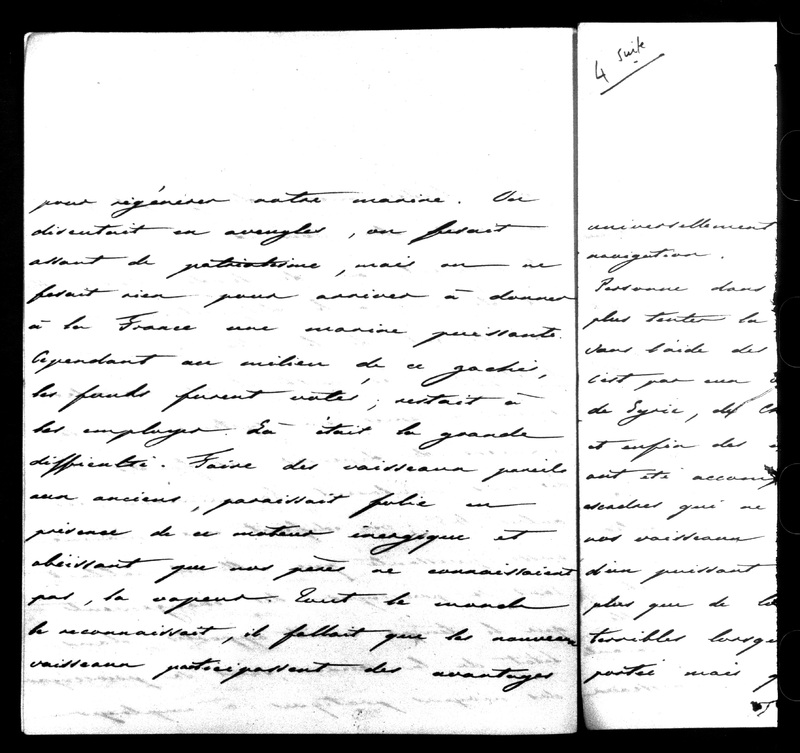 pour régénérer notre marine. On
discutait en aveugles, on fesait
assaut de patriotisme, mais on ne
fesait rien pour arriver à donner
à la France une marine puissante.
Cependant au milieu de ce gachis,
les fonds furent votés; restait à
les employer. Là était la grande
difficulté. Faire des vaisseaux pareils
aux anciens, paraissait folie en
présence de ce moteur énergique et
obéissant que nos pères ne connaissaient
pas, la vapeur. Tout le monde
le reconnaissait, il fallait que les nouveaux
vaisseaux participassent des avantages
4 suite
universellement
navigation.
Personne dans
plus tenter la
sans l'aide des
C'est par eux
de Syrie, de
et enfin des
ont été accom
escadres qui ne
nos vaisseaux
d'un puissant
plus que de
terribles lorsqu
portée mais